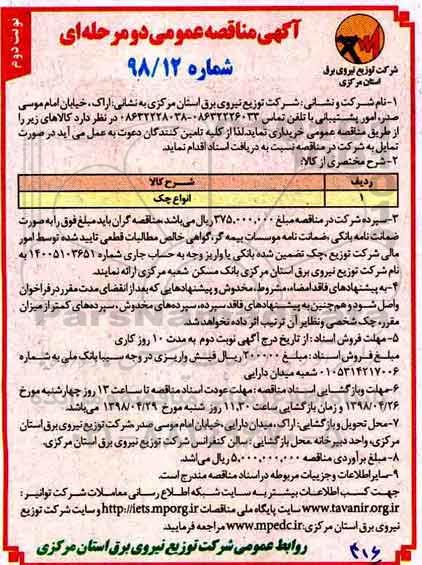 نوبت دوم
آگهی مناقصه عمومی دو مرحله ای
شماره ۹۸/۱۲
شرکت توزیع نیروی برق
استان مرکزی
۱-نام شرکت و نشانی: شرکت توزیع نیروی برق استان مرکزی به نشانی: اراک، خیابان امام موسی
صدر، امور پشتیبانی با تلفن تماس ۰۸۶۳۲۲۲۶۰۳۳-۰۸۶۳۲۲۲۸۰۳۸ در نظر دارد کالاهای زیر را
از طریق مناقصه عمومی خریداری نماید. لذا از کلیه تامین کنندگان دعوت به عمل می آید در صورت
تمایل به شرکت در مناقصه نسبت به دریافت اسناد اقدام نماید.
۲-شرح مختصری از کالا:
ردیف شرح کالا
۱ انواع جک
۳-سپرده شرکت در مناقصه مبلغ ۳۷۵,۰۰۰,۰۰۰ ریال می باشد، مناقصه گران باید مبلغ فوق را به صورت
ضمانت نامه بانکی، ضمانت نامه موسسات بیمه گر، گواهی خالص مطالبات قطعی تایید شده توسط امور
مالی شرکت توزیع، چک تضمین شده بانکی یا واریز وجه به حساب جاری شماره ۱۴۰۰۵۱۰۳۶۵۱ به
نام شرکت توزیع نیروی برق استان مرکزی بانک مسکن شعبه مرکزی ارائه نمایند.
۴-به پیشنهادهای فاقد امضاء، مشروط، مخدوش و پیشنهادهایی که بعد از انقضای مدت مقرر در فراخوان
واصل شود و هم چنین به پیشنهادهای فاقد سپرده، سپرده های مخدوش، سپرده های کمتر از میزان
مقرر، چک شخصی و نظایر آن ترتیب اثر داده نخواهد شد.
۵-مهلت فروش اسناد: از تاریخ درج آگهی نوبت دوم به مدت ۱۰ روز کاری
مبلغ فروش اسناد: مبلغ ۲۰۰۰۰۰ ریال فیش واریزی در وجه سیبا بانک ملی به شماره
۰۱۰۵۳۱۴۲۱۷۰۰۶ شعبه میدان دارایی
۶-مهلت بازگشایی اسناد مناقصه: مهلت عودت اسناد مناقصه تا ساعت ۱۳ روز چهارشنبه مورخ
۱۳۹۸/۰۴/۲۶ و زمان بازگشایی ساعت ۱۱.۳۰ روز شنبه مورخ ۱۳۹۸/۰۴/۲۹ می باشد.
۷-محل تحویل و بازگشایی: اراک، میدان دارایی، خیابان امام موسی صدر، شرکت توزیع نیروی برق استان
مرکزی، واحد دبیرخانه محل بازگشایی: سالن کنفرانس شرکت توزیع نیروی برق استان مرکزی.
۸-مبلغ برآوردی مناقصه ۵,۰۰۰,۰۰۰,۰۰۰ ریال می باشد.
۹-سایر اطلاعات و جزییات مربوطه در اسناد مناقصه مندرج است.
جهت کسب اطلاعات بیشتر به سایت شبکه اطلاع رسانی معاملات شرکت توانیر:
www.tavanir.org.ir سایت پایگاه ملی مناقصات http://iets.mporg.ir و سایت شرکت توزیع
نیروی برق استان مرکزی: www.mpedc.ir مراجعه فرمایید.
روابط عمومی شرکت توزیع نیروی برق استان مرکزی